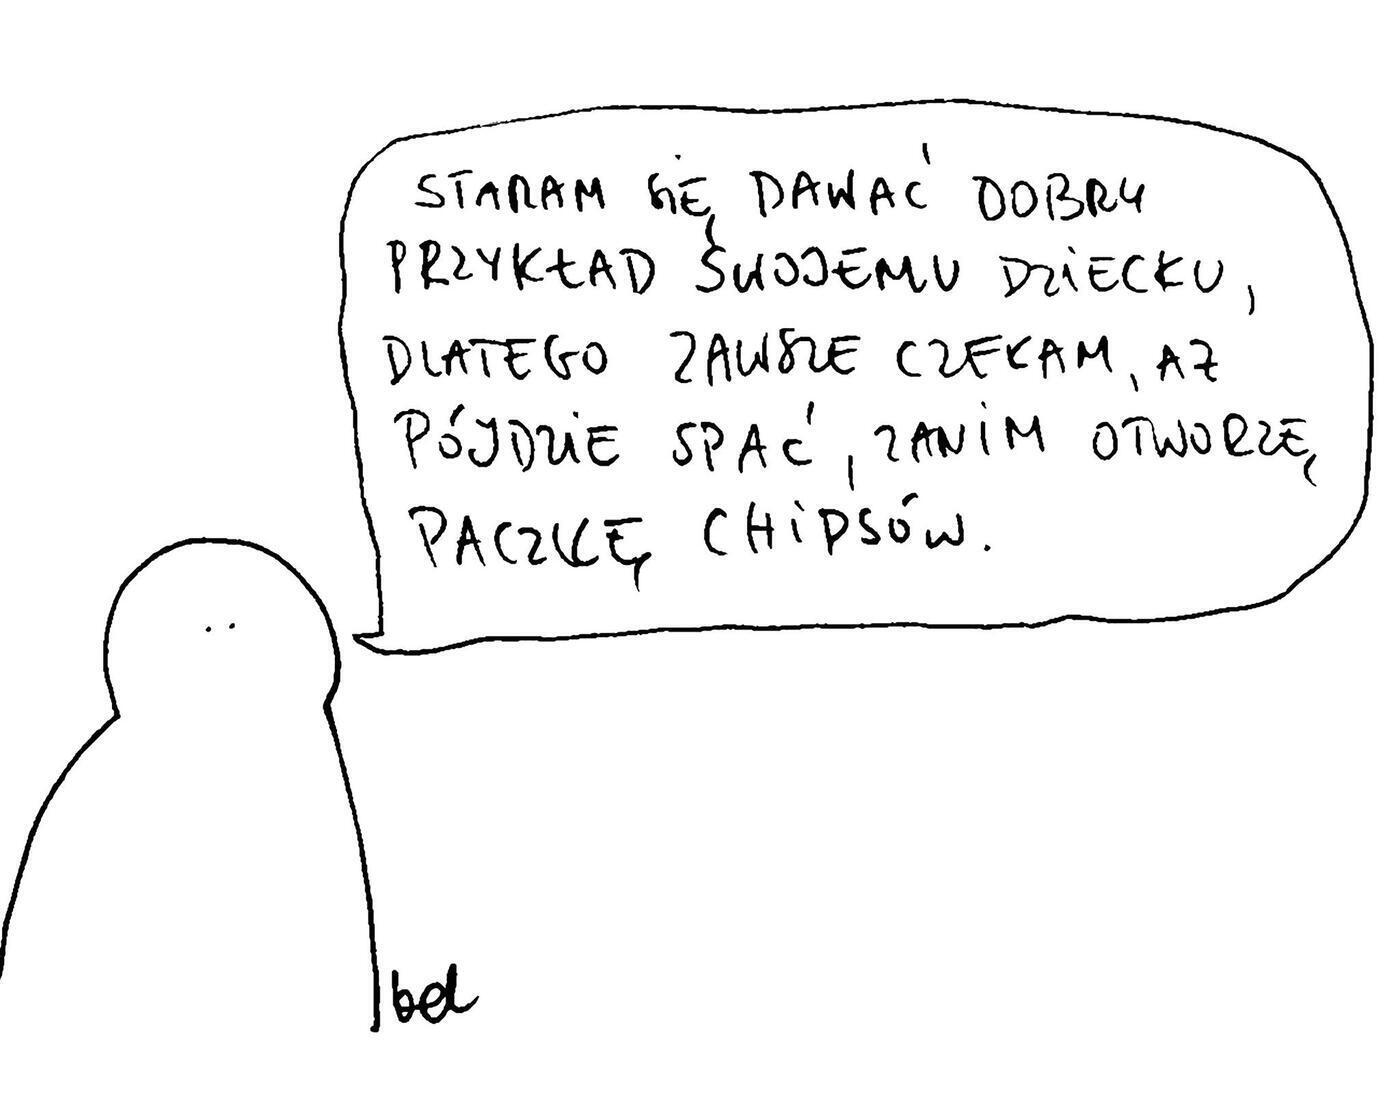 STARAM SIĘ DAWAĆ DOBRY
PRZYKŁAD SWOJEMU DZIECKU,
DLATEGO ZAWSZE CZEKAM, AŻ
PÓJDZIE SPAĆ, ZANIM OTWORZĘ
PACZKĘ CHIPSÓW.
bel